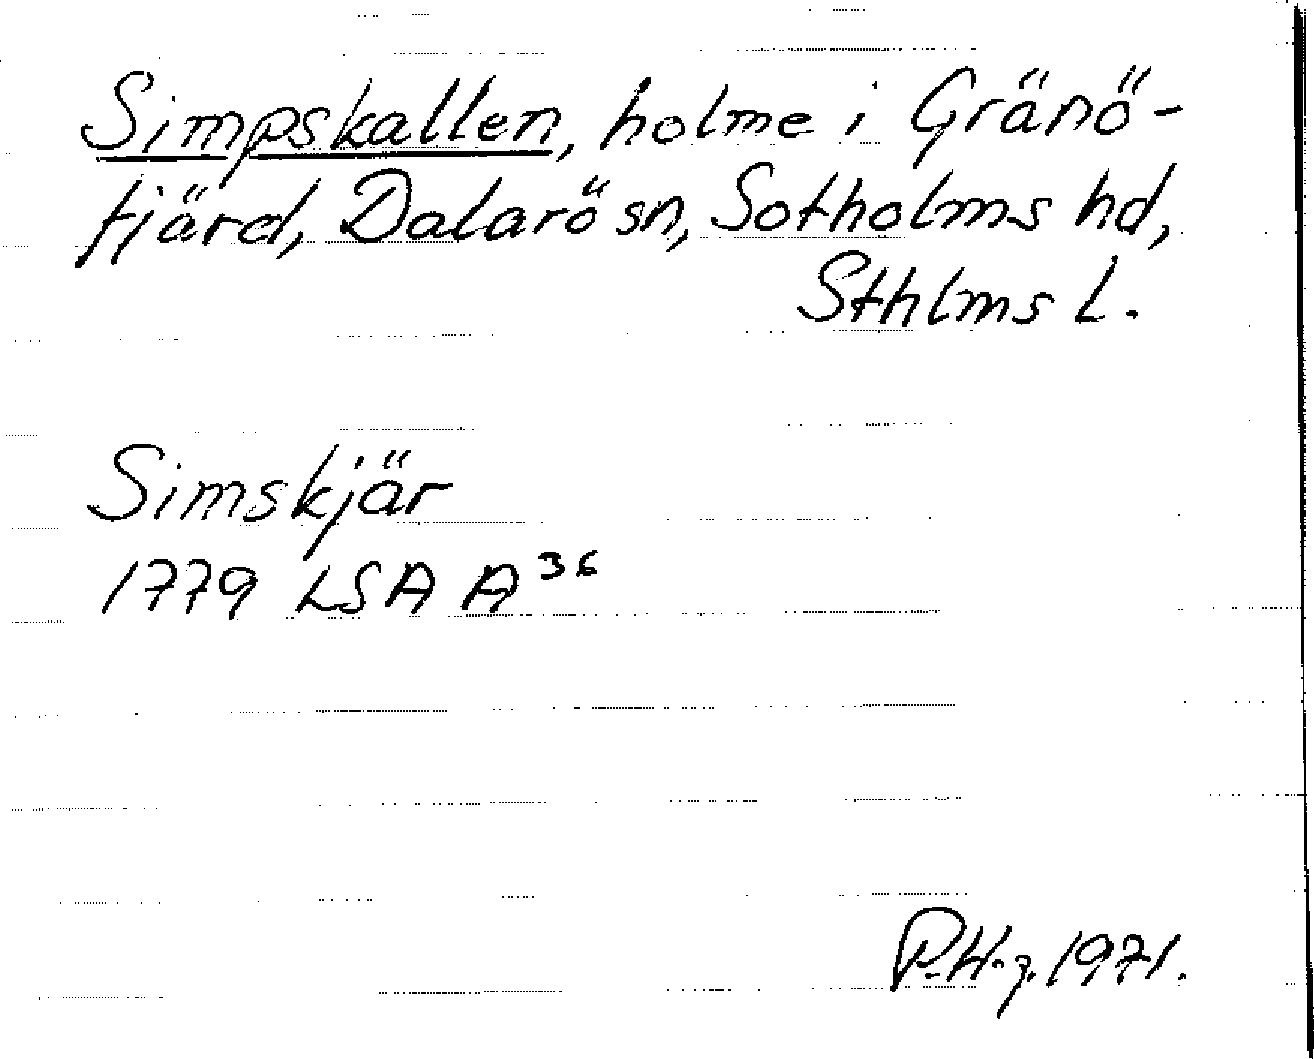 Simpskallen, holme i Gränö-
fjärd, Dalarö sn, Sotholms hd,
Sthlms l.
Simskjär
1779 LSA A³⁶
P.H-g. 1971.